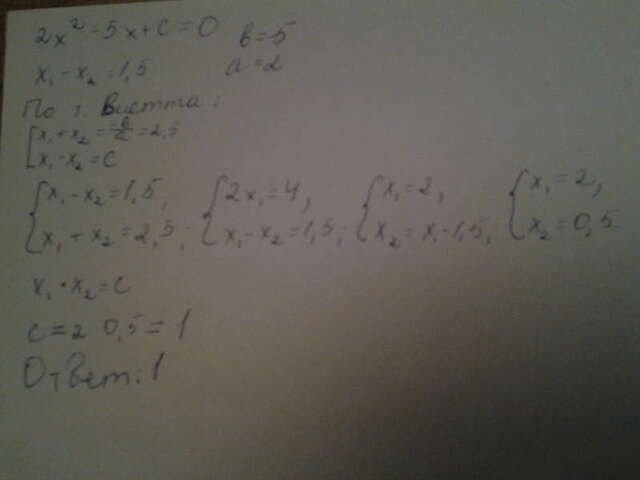 2x² - 5x + c = 0 b = -5
x₁ - x₂ = 1,5 a = 2
По т. Виетта:
{x₁ + x₂ = -b/a = 2,5
x₁ · x₂ = c
{x₁ - x₂ = 1,5, {2x₁ = 4, {x₁ = 2, {x₁ = 2,
x₁ + x₂ = 2,5; x₁ - x₂ = 1,5; x₂ = x₁ - 1,5; x₂ = 0,5
x₁ · x₂ = c
c = 2 0,5 = 1
Ответ: 1